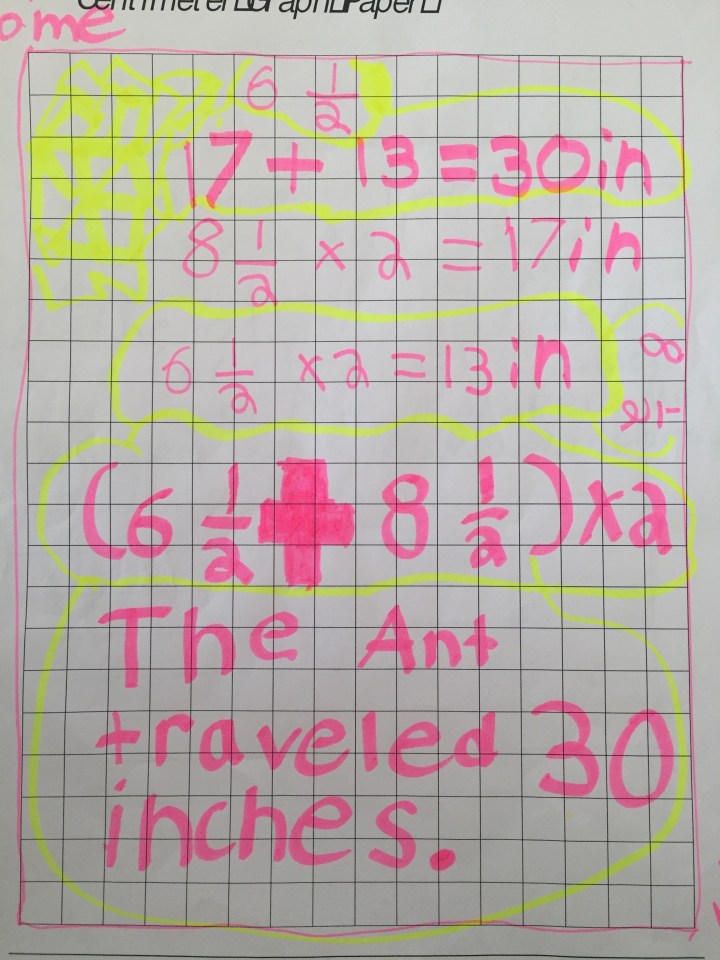 Centimeter Graph Paper
ome
6 1/2
17 + 13 = 30in
8 1/2 × 2 = 17in
6 1/2 × 2 = 13in
8 1/2
(6 1/2 + 8 1/2) × 2
The Ant
traveled 30
inches.